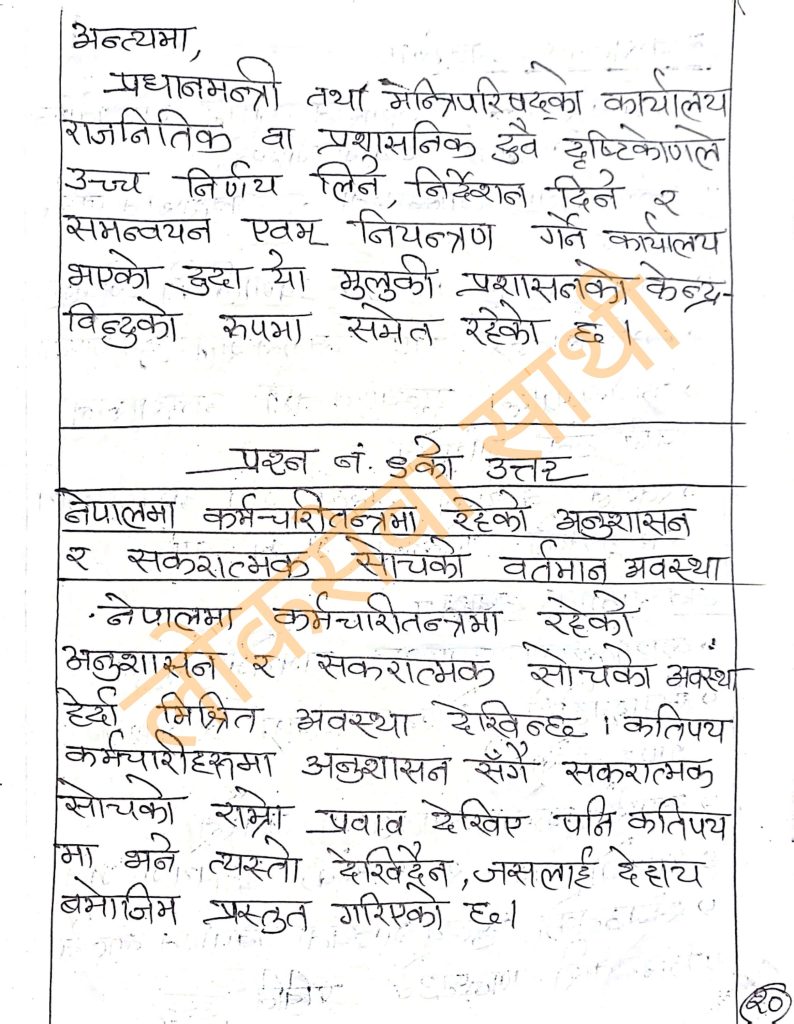 अन्त्यमा,
प्रधानमन्त्री तथा मन्त्रिपरिषद्को कार्यालय
राजनितिक वा प्रशासनिक दुवै दृष्टिकोणले
उच्च निर्णय लिने, निर्देशन दिने र
समन्वयन एवम् नियन्त्रण गर्ने कार्यालय
भएको हुदा यो मुलुकी प्रशासनको केन्द्र-
विन्दुको रुपमा समेत रहेको छ।
प्रश्न नं. ९को उत्तर
नेपालमा कर्मचारीतन्त्रमा रहेको अनुशासन
र सकरात्मक सोचको वर्तमान अवस्था
नेपालमा कर्मचारीतन्त्रमा रहेको
अनुशासन र सकरात्मक सोचको अवस्था
हेर्दा मिश्रित अवस्था देखिन्छ। कतिपय
कर्मचारीहरुमा अनुशासन सँगै सकरात्मक
सोचको राम्रो प्रवाव देखिए पनि कतिपय
मा भने त्यस्तो देखिदैन, जसलाई देहाय
बमोजिम प्रस्तुत गरिएको छ।
लोकसेवा साथी
२०